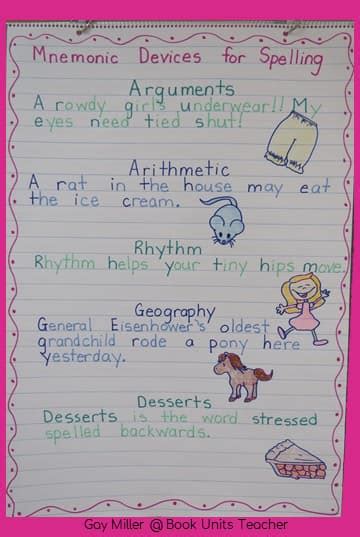 Mnemonic Devices for Spelling
Arguments
A rowdy girl's underwear!! My
eyes need tied shut!
Arithmetic
A rat in the house may eat
the ice cream.
Rhythm
Rhythm helps your tiny hips move.
Geography
General Eisenhower's oldest
grandchild rode a pony here
yesterday.
Desserts
Desserts is the word stressed
spelled backwards.
Gay Miller @ Book Units Teacher